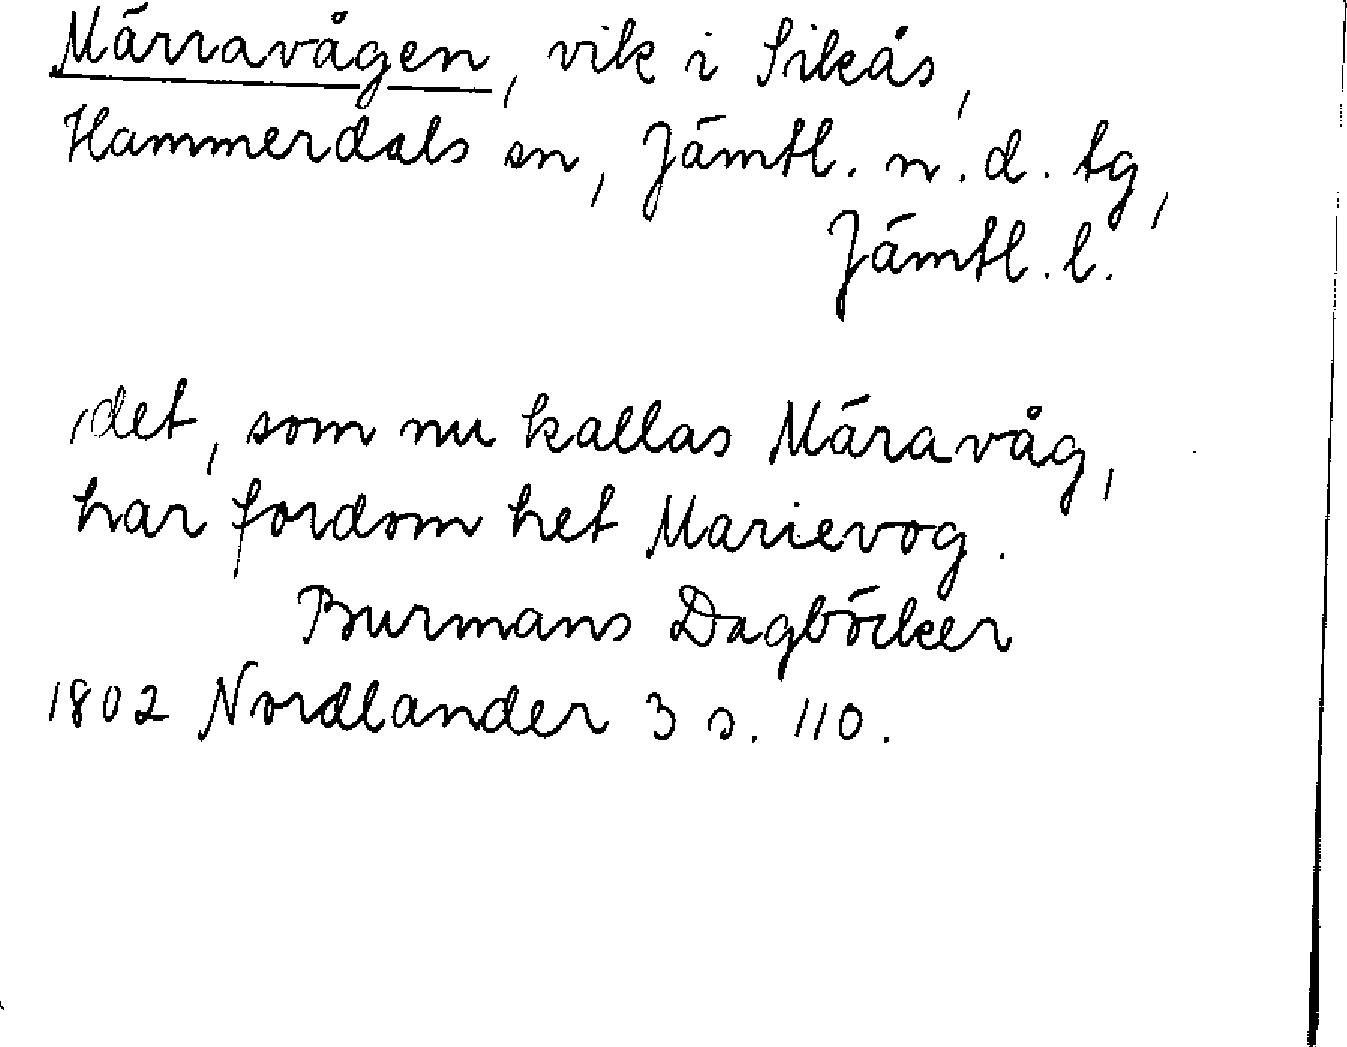 Märravågen, vik i Sikås,
Hammerdals sn, Jämtl. n. d. tg,
Jämtl. l.
,det, som nu kallas Märavåg,
har fordom het Marievog.
Burmans Dagböcker
1802 Nordlander 3 s. 110.